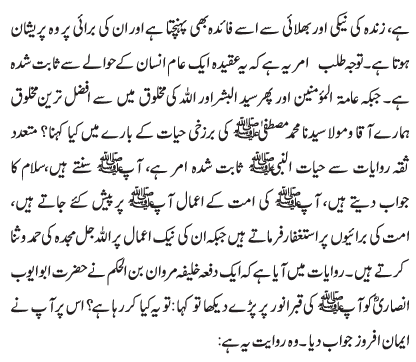 ہے، زندہ کی نیکی اور بھلائی سے اسے فائدہ بھی پہنچتا ہے اور ان کی برائی پر وہ پریشان
ہوتا ہے۔ توجہ طلب امر یہ ہے کہ یہ عقیدہ ایک عام انسان کے حوالے سے ثابت شدہ
ہے۔ جبکہ عامۃ المؤمنین اور پھر سید البشر اور اللہ کی مخلوق میں سے افضل ترین مخلوق
ہمارے آقا و مولا سیدنا محمد مصطفیٰ ﷺ کی برزخی حیات کے بارے میں کیا کہنا؟ متعدد
ثقہ روایات سے حیات النبی ﷺ ثابت شدہ امر ہے، آپ ﷺ سنتے ہیں، سلام کا
جواب دیتے ہیں، آپ ﷺ کی امت کے اعمال آپ ﷺ پر پیش کئے جاتے ہیں،
امت کی برائیوں پر استغفار فرماتے ہیں جبکہ ان کی نیک اعمال پر اللہ جل مجدہ کی حمد و ثنا
کرتے ہیں۔ روایات میں آیا ہے کہ ایک دفعہ خلیفہ مروان بن الحکم نے حضرت ابو ایوب
انصاریؓ کو آپ ﷺ کی قبر انور پر پڑے دیکھا تو کہا: تو یہ کیا کر رہا ہے؟ اس پر آپ نے
ایمان افروز جواب دیا۔ وہ روایت یہ ہے: